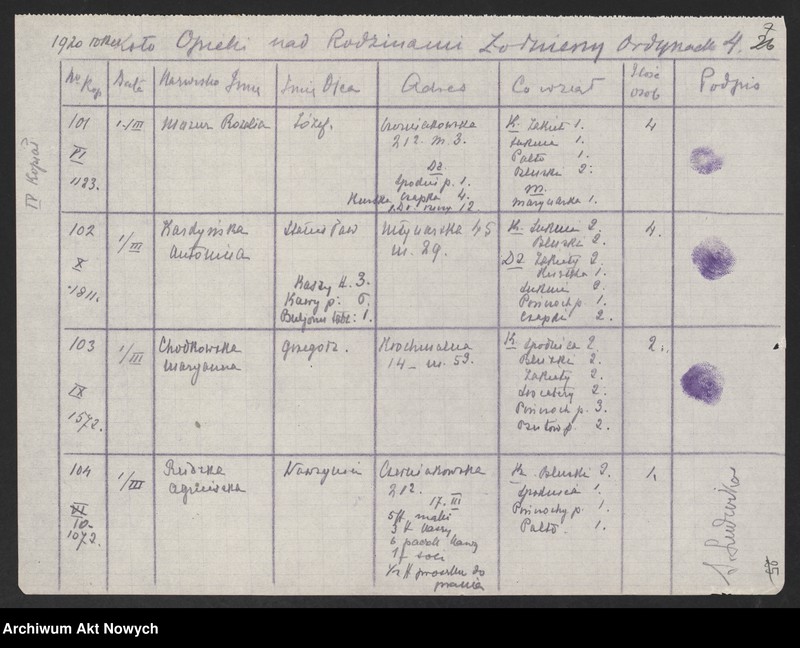 1920 rok Koło Opieki nad Rodzinami Żołnierzy Ordynacka 4.
No Kop. Data Nazwisko Imię Imię Ojca Adres Co wziął Ilość osób Podpis
IV Kopiał
101 1./III Mazur Rozalia Józef. Czerniakowska 4
212. m. 3.
VI
1123.
K. Żakiet 1.
Suknia 1.
Palto 1.
Bluzki 2.
M.
Marynarka 1.
Dz.
Spodni p. 1.
Czapka 4.
102 1/III Kardyńska Antonina Stanisław Młynarska 45 4.
m. 29.
X
1811.
Kaszy K. 3.
Kawy p.
1.
K. Suknia 2.
Bluzki 2.
Dz. Żakiety 2.
Bluzka 1.
Suknia 2.
Pończoch p. 1.
Czapki 2.
103 1/III Chodkowska Maryanna Grzegorz. Krochmalna 2.
14 – m. 59.
IX
1572.
K. Spódnica 2.
Bluzki 2.
Żakiety 2.
2.
Pończoch p. 3.
2.
104 1/III Rudzka Agnieszka Wawrzyniec Czerniakowska 1.
212.
VI
10.
1072.
17. III
5 K mąki
3 K kaszy
6 paczek kawy
1 f soli
½ K proszku do
prania
K. Bluzki 2.
Spódnica 1.
Pończochy p. 1.
Palto. 1.
Archiwum Akt Nowych